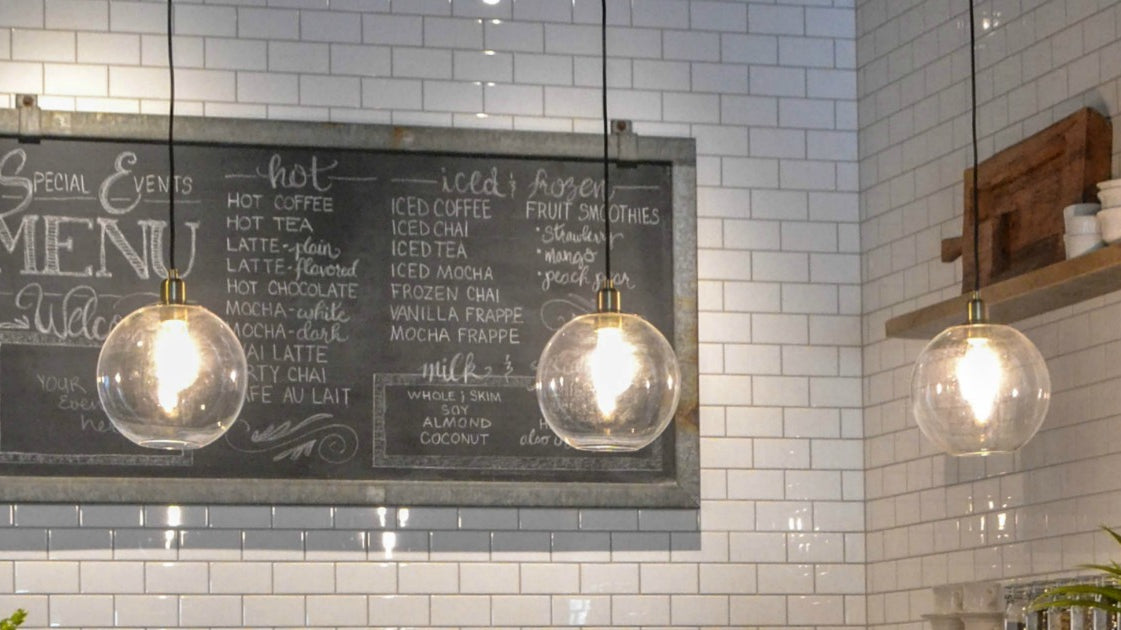 Special Events
MENU
YOUR
hot
HOT COFFEE
HOT TEA
LATTE-plain
LATTE-flavored
HOT CHOCOLATE
MOCHA-white
MOCHA-dark
LATTE
CHAI
AU LAIT
iced & frozen
ICED COFFEE
ICED CHAI
ICED TEA
ICED MOCHA
FROZEN CHAI
VANILLA FRAPPE
MOCHA FRAPPE
FRUIT SMOOTHIES
•strawberry
•mango
•peach pear
milk &
WHOLE & SKIM
SOY
ALMOND
COCONUT
also